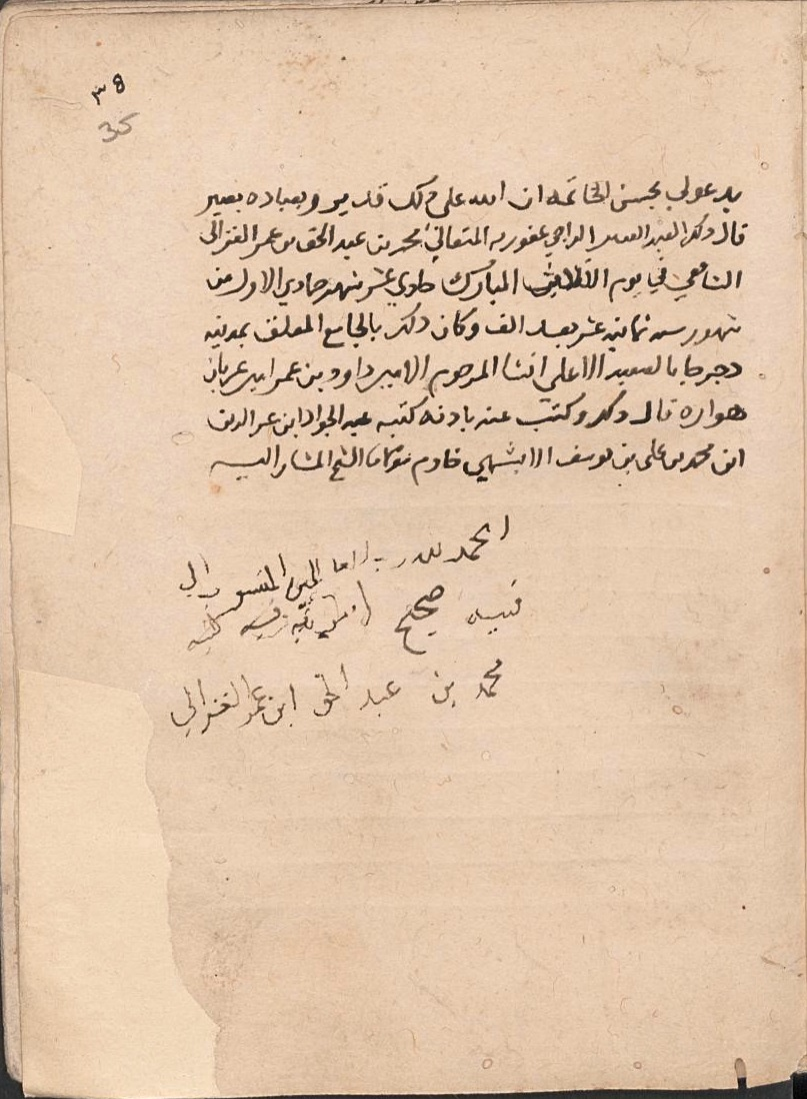 ٣٤
35
يدعولي بحسن الخاتمه ان الله على ذلك قدير وبعباده بصير
قال ذلك العبد الفقير الراجي عفو ربه المتعالي محمد بن عبد الحق بن عمر الغزالي
الشافعي في يوم الثلاثا المبارك حادي عشر شهر جمادي الاول من
شهور سنه ثمانيه عشر بعد الالف وكان ذلك بالجامع المعلق بمدينه
دجرجا بالصعيد الاعلى انشا المرحوم الامير داود بن عمر امير عربان
هواره قال ذلك وكتب عنه باذنه كتبه عبد الجواد ابن عز الدين
ابن محمد بن علي بن يوسف الابشيهي خادم مولانا الشيخ المشار اليه
الحمد لله رب العالمين المنسوب الي
فيه صحيح
محمد بن عبد الحق ابن عمر الغزالي